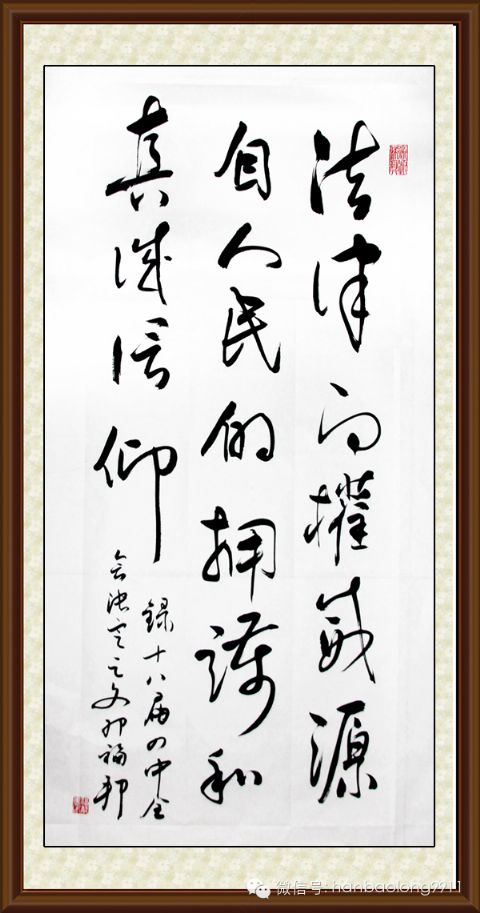 法律的權威源
自人民的拥護和
真诚信仰
録十八届四中全
会决定之文
微信号: hanbaolong9911